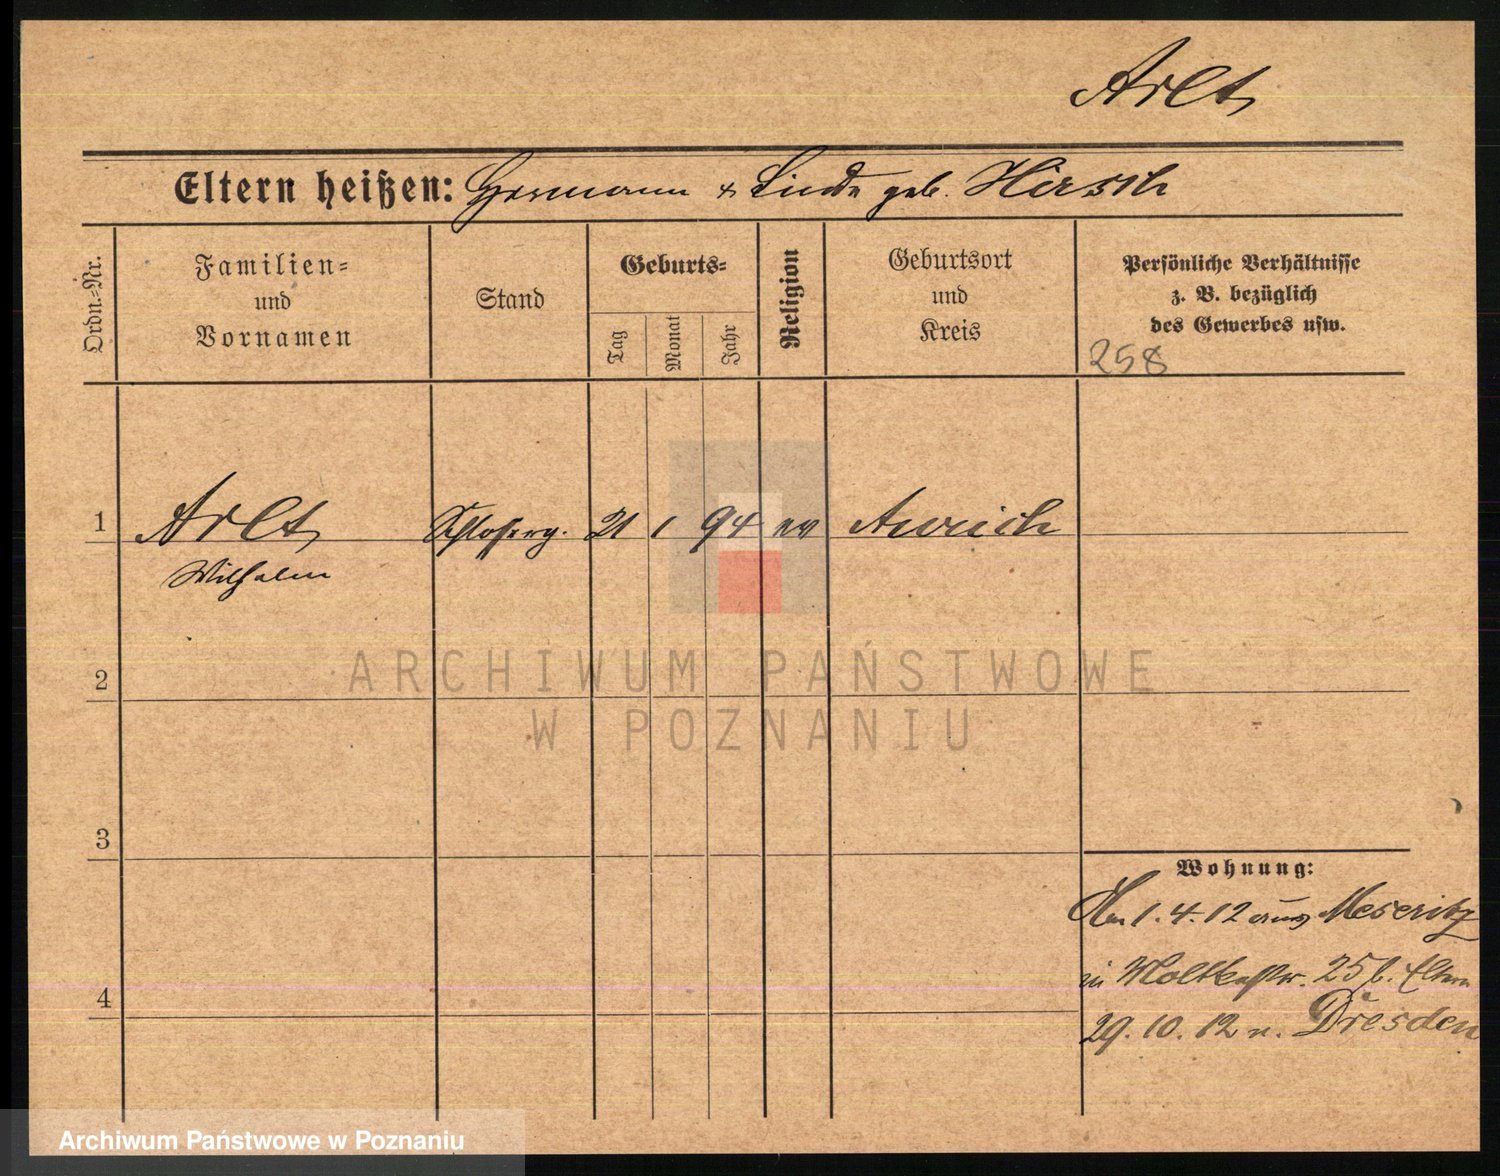 Arlt
Eltern heißen: Hermann & Linda geb. Hirsch
Ordn.-Nr.
Familien-
und
Vornamen
Stand
Geburts-
Tag
Monat
Jahr
Religion
Geburtsort
und
Kreis
Persönliche Verhältnisse
z. B. bezüglich
des Gewerbes usw.
258
1 Arlt Schlosserg. 21 1 94 ev Aurich
Wilhelm
2
3
4
Wohnung:
Am 1.4.12 aus Meseritz
in Moltkestr. 25 b. Eltern
29.10.12 n. Dresden
ARCHIWUM PAŃSTWOWE
W POZNANIU
Archiwum Państwowe w Poznaniu